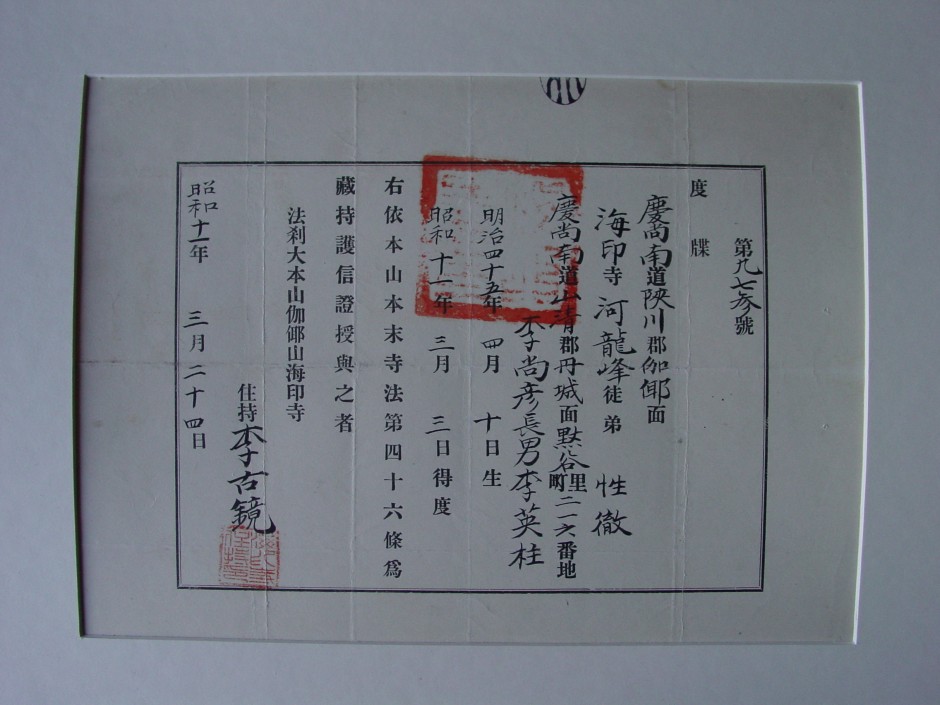 第九七參號
度牒
慶尚南道陜川郡伽倻面
海印寺河龍峰徒弟 性徹
慶尚南道山淸郡丹城面黙谷里町二一六番地
李尚彦長男李英柱
明治四十五年四月十日生
昭和十一年三月三日得度
右依本山本末寺法第四十六條爲
藏持護信證授與之者
法刹大本山伽倻山海印寺
住持李古鏡
昭和十一年三月二十四日